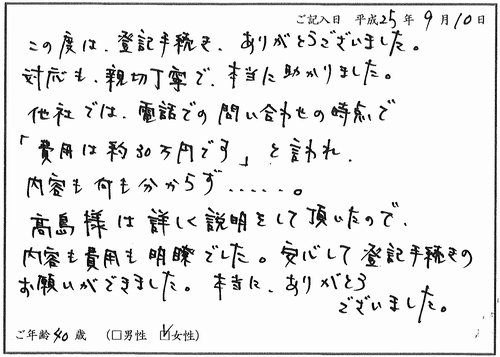 ご記入日 平成25年9月10日
この度は、登記手続き、ありがとうございました。
対応も、親切丁寧で、本当に助かりました。
他社では、電話での問い合わせの時点で
「費用は約30万円です」と言われ、
内容も何も分からず……。
高島様は詳しく説明をして頂いたので、
内容も費用も明瞭でした。安心して登記手続きの
お願いができました。本当に、ありがとう
ございました。
ご年齢40歳 (□男性 ☑女性)